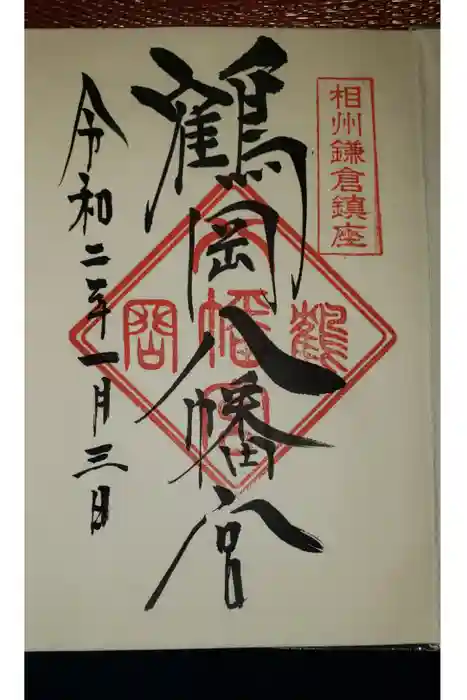 相州鎌倉鎮座
鶴岡八幡宮
令和二年一月三日
鶴
八幡宮
岡